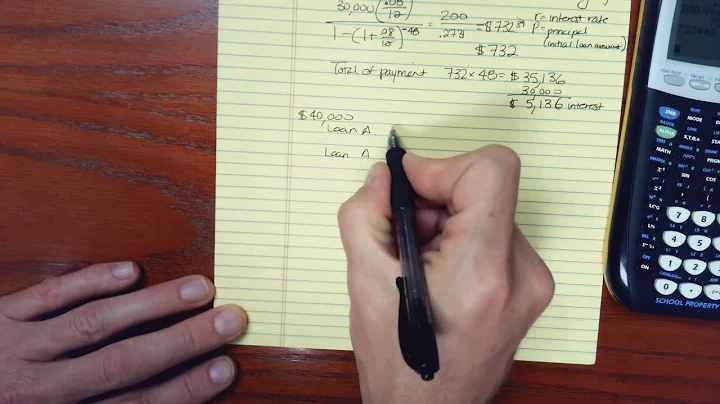 30,000 (.08/12) = 200 = $732.37 r = interest rate
1-(1+.08/12)^-48 .273 P = principal
(initial loan amount)
$732
Total of payment 732 × 48 = $35,136
30,000
$ 5,136 interest
$40,000
Loan A:
Loan A
2ND
ALPHA
MATH
APPS
PRGM
X⁻¹
SIN
COS
X²
LOG
7
8
LN
4
5
STO
1
2
ON
0
OFF
SCHOOL PROPERTY